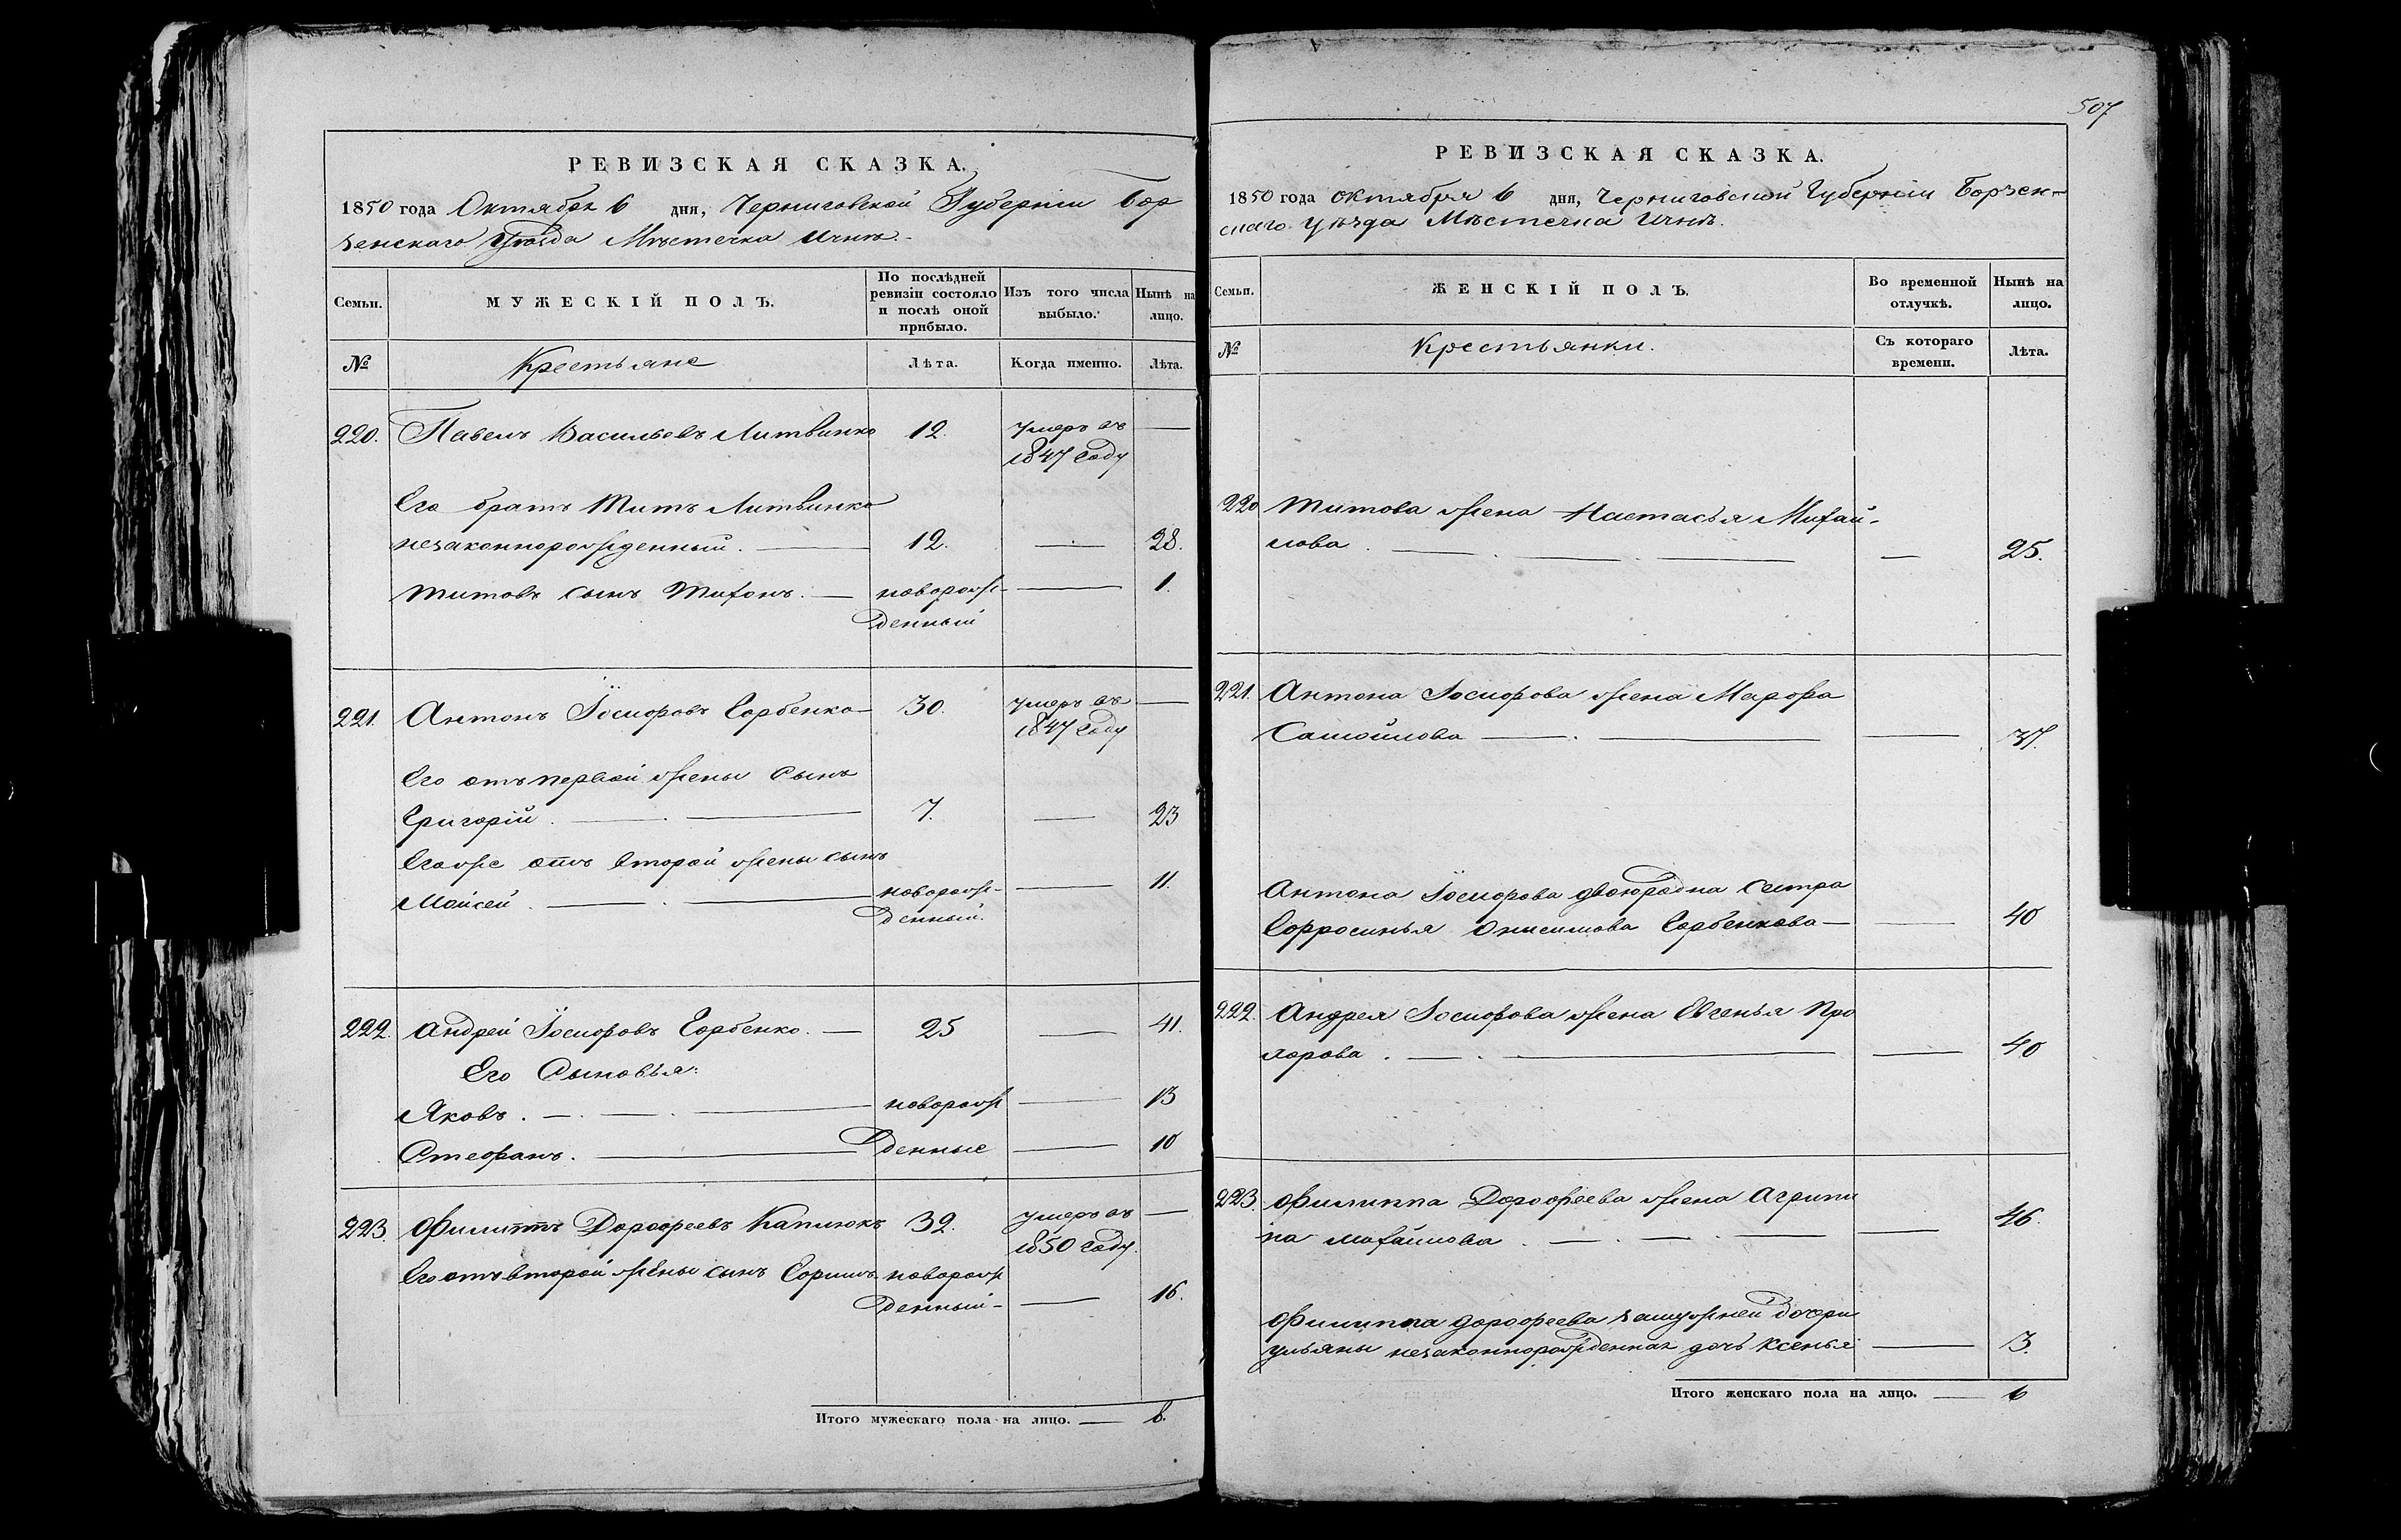 РЕВИЗСКАЯ СКАЗКА.
1850 года Октября 6 дня, Черниговской Губерніи Бор
зенскаго Уѣзда Мѣстечка Ични.
Семьи.
МУЖЕСКІЙ ПОЛЪ.
По послѣдней ревизіи состояло и послѣ оной прибыло.
Изъ того числа выбыло.
Нынѣ на лицо.
№
Крестьяне
Лѣта.
Когда именно.
Лѣта.
220. Павелъ Васильевъ Литвинко 12. умеръ въ —
1847 году
Его братъ Титъ Литвинко
незаконнорожденный. — 12. — 28.
Титовъ сынъ Тихонъ. — новорож- — 1.
денный
221. Антонъ Іосифовъ Горбенко — 30. умеръ въ —
1847 году
Его отъ первой жены сынъ
Григорій. — 7. — 23
Его же отъ второй жены сынъ
Моисей. — новорож- — 11.
денный.
222. Андрей Іосифовъ Горбенко. — 25 — 41.
Его Сыновья:
Яковъ. — новорож — 13
Стефанъ. — денные — 10
223. Филиппъ Дорофеевъ Каплюкъ 32. умеръ въ —
1850 году.
Его отъ второй жены сынъ Ефимъ новорож
денный — 16.
Итого мужескаго пола на лицо. — 8.
507
РЕВИЗСКАЯ СКАЗКА.
1850 года октября 6 дня, Черниговской Губерніи Борзен-
скаго уѣзда Мѣстечка Ични.
Семьи.
ЖЕНСКІЙ ПОЛЪ.
Во временной отлучкѣ.
Нынѣ на лицо.
№
Крестьянки.
Съ котораго времени.
Лѣта.
220 Титова жена Настасья Михай-
лова. — 25.
221. Антона Іосифова жена Марфа
Самойлова — 37.
Антона Іосифова двоюродна сестра
Ефросинья Онисимова Горбенкова — 40
222. Андрея Іосифова жена Евгенья Про
хорова. — 40
223. Филиппа Дорофеева жена Агрипи
на Михайлова. — 46.
Филиппа Дорофеева замужней дочери
Ульяны незаконнорожденная дочь Ксенья — 3.
Итого женскаго пола на лицо. — 6